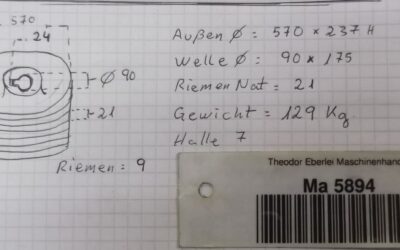 570
24
Ø 90
21
Riemen: 9
Außen Ø: 570 × 237 H
Welle Ø: 90 × 175
Riemen Nat: 21
Gewicht: 129 Kg
Halle 7
Theodor Eberlei Maschinenhand
Ma 5894